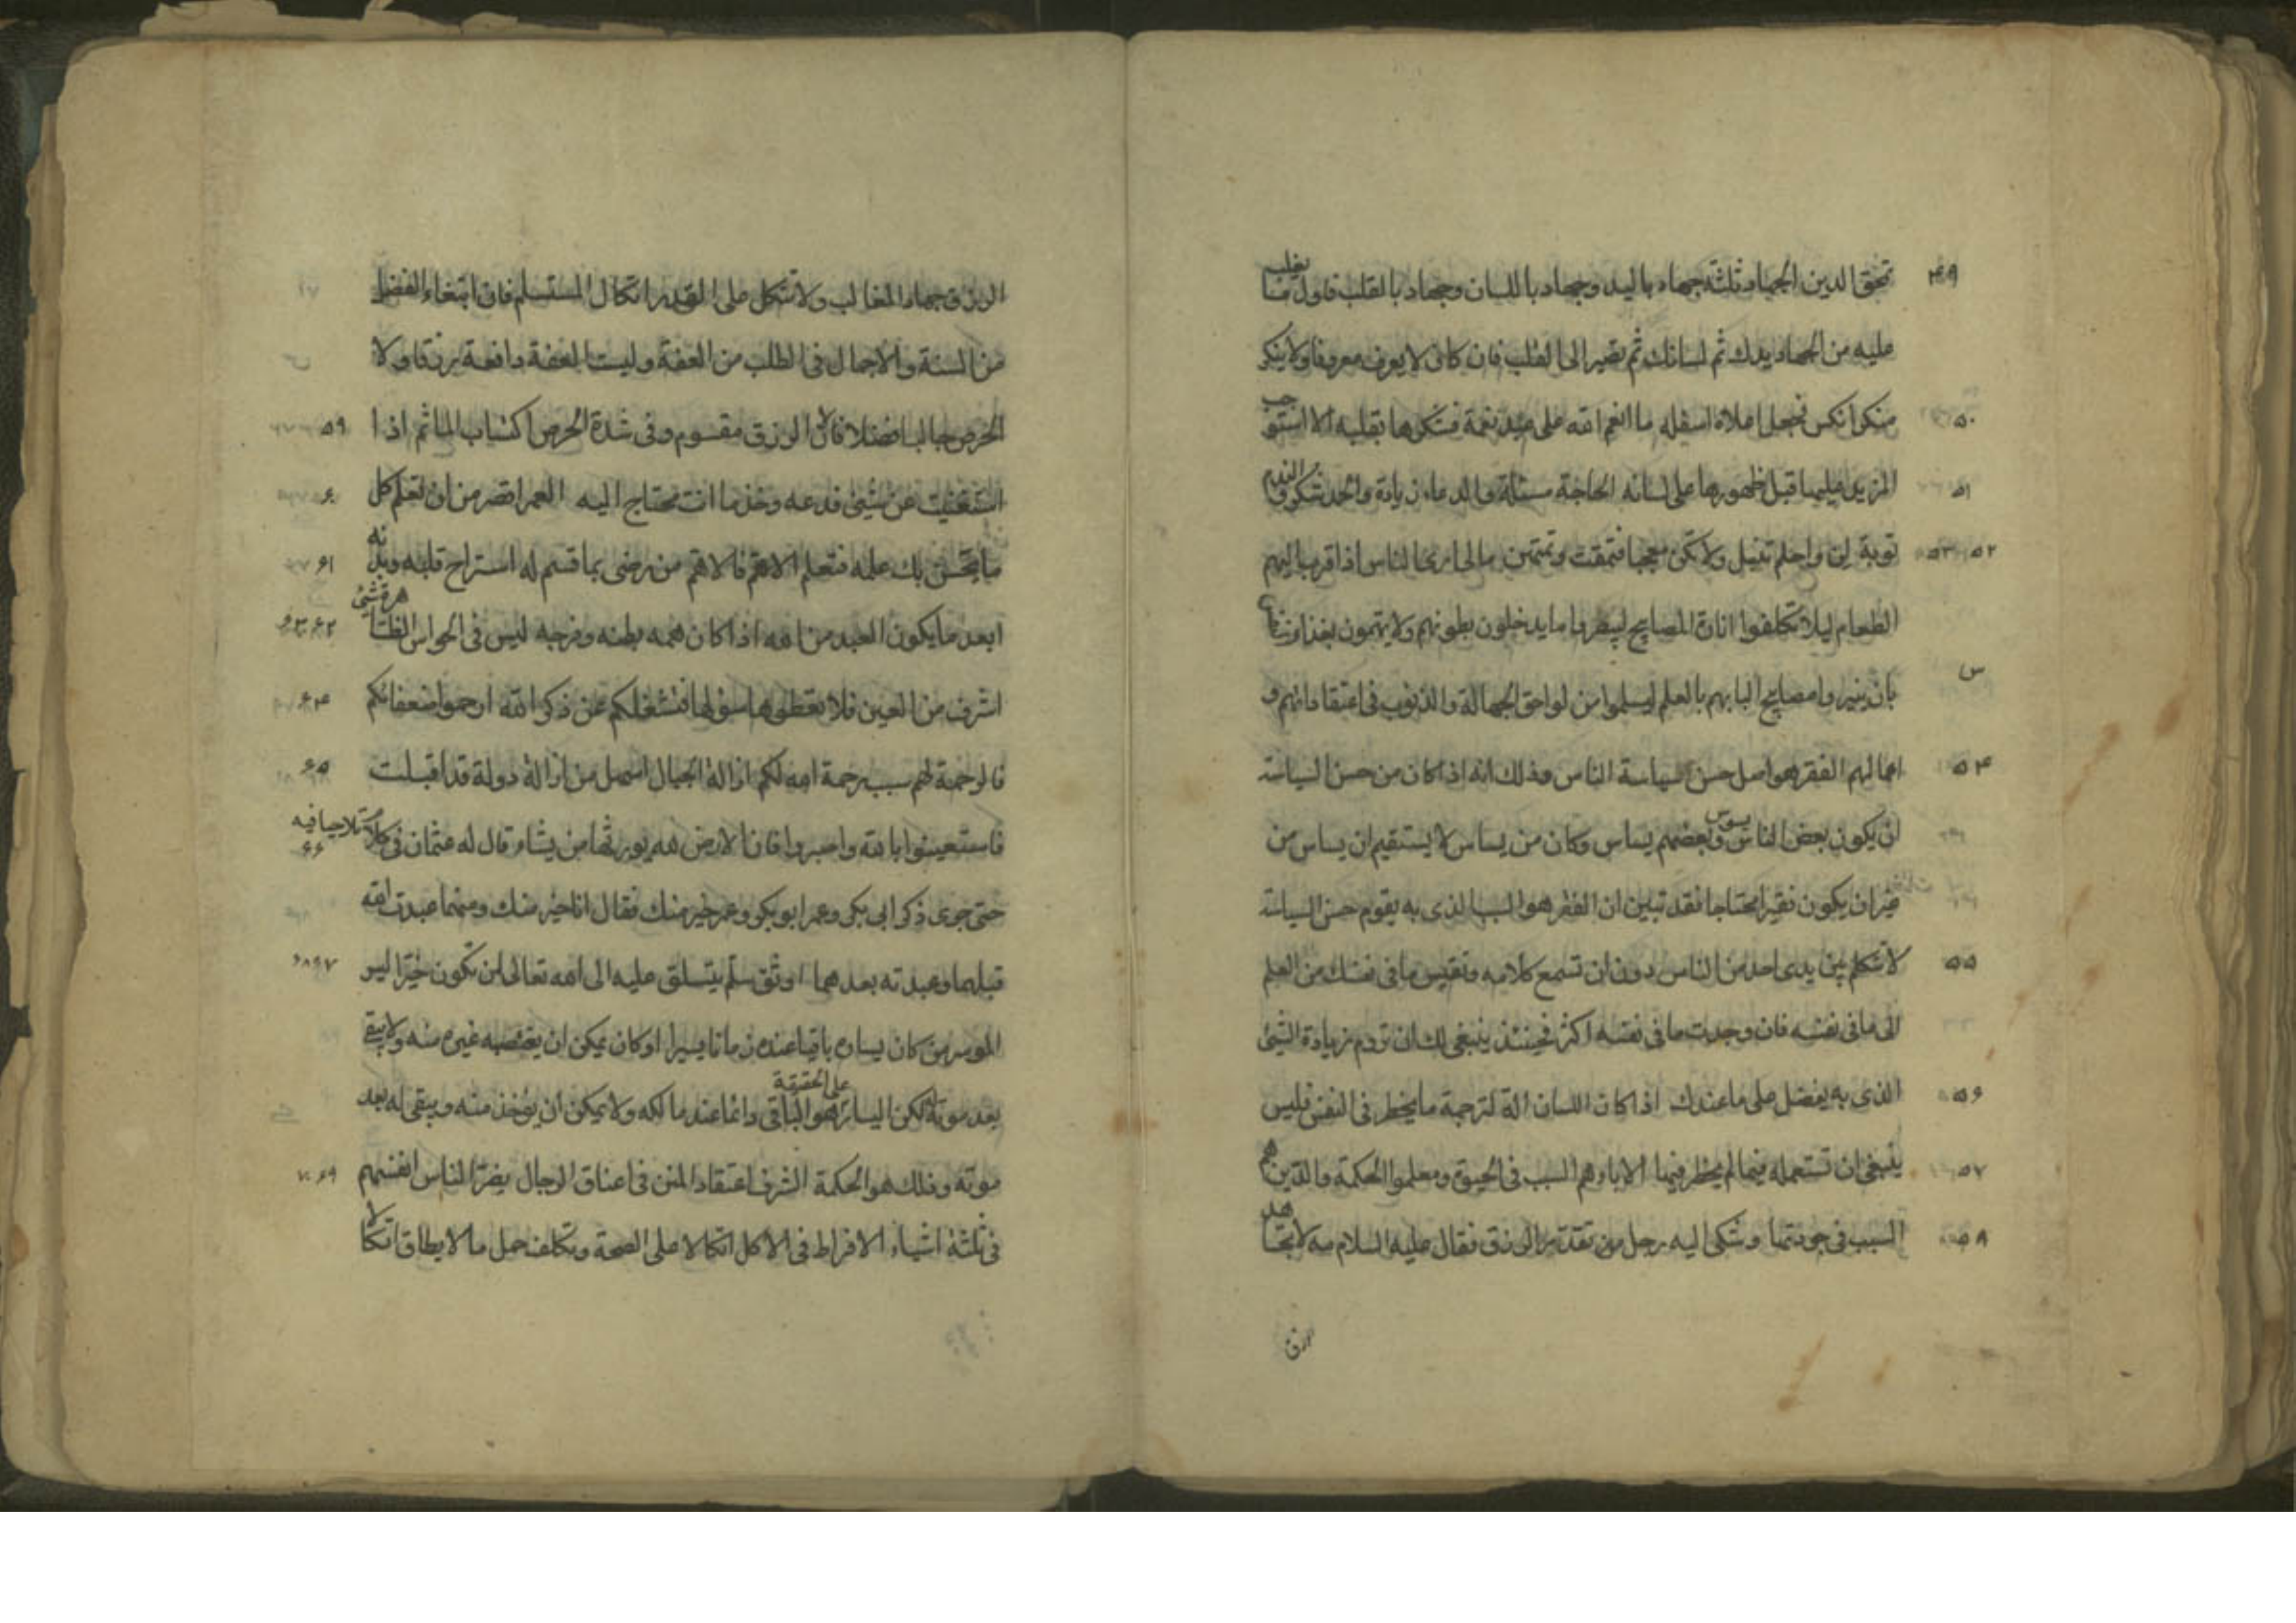 تمحق الدين الجهاد ثلثة جهاد باليد وجهاد باللسان وجهاد بالقلب فاول ما يغلب ۴۹
عليه من الجهاد يدك ثم لسانك ثم يصير الى القلب فان كان لا يعرف معروفا ولا ينكر
منكرا نكس فجعل اعلاه اسفله ما انعم الله على عبد نعمة فشكرها بقلبه الا استوجب ۵۰
المزيد عليها قبل ظهورها على لسانه الحاجة مسئلة والدعاء زيادة والحمد شكر والندم ۵۱
توبة لن واحلم تنبل ولا تكن معجبا فتمقت وتمتهن مالى ارى الناس اذا قرب اليهم ۵۲ ۵۳
الطعام ليلا تكلفوا انارة المصابيح ليبصروا ما يدخلون بطونهم ولا يهتمون بغذاء
بان ينيروا مصابيح البابهم بالعلم ليسلموا من لواحق الجهالة والذنوب فى اعتقاداتهم و
اعمالهم الفقر هو اصل حسن سياسة الناس وذلك انه اذا كان من حسن السياسة ۵۴
ان يكون بعض الناس يسوس وبعضهم يساس وكان من يساس لا يستقيم ان يساس من
غير ان يكون فقيرا محتاجا فقد تبين ان الفقر هو السبب الذى به يقوم حسن السياسة
لا تتكلم بين يدى احد من الناس دون ان تسمع كلامه وتقيس ما فى نفسك من العلم ۵۵
الى ما فى نفسه فان وجدت ما فى نفسه اكثر فحينئذ ينبغى لك ان تروم زيادة الشىء
الذى به يفضل على ما عندك اذا كان اللسان الة لترجمة ما يخطر فى النفس فليس ۵۶
ينبغى ان تستعمله فيما لم يخطر فيها الاباء هم السبب فى الحيوة ومعلموا الحكمة والدين هم ۵۷
السبب فى جودتها وشكى اليه رجل من تعذر الرزق فقال عليه السلام مه لا تجاهد ۵۸
الرزق
الرزق جهاد المغالب ولا تتكل على القدر اتكال المستسلم فان ابتغاء الفضل
من السنة والاجمال فى الطلب من العفة وليست العفة دافعة رزقا ولا
الحرص جالبا فضلا لان الرزق مقسوم وفى شدة الحرص اكتساب الماثم اذا ۵۹
استغنيت عن شىء فدعه وخذ ما انت محتاج اليه العمر اقصر من ان تعلم كل ۶۰
ما يحسن بك علمه فتعلم الاهم فالاهم من رضى بما قسم له استراح قلبه وبدنه ۶۱
ابعد ما يكون العبد من الله اذا كان همه بطنه وفرجه ليس فى الحواس الظاهرة شىء ۶۲ ۶۳
اشرف من العين فلا تعطوها سؤلها فتشغلكم عن ذكر الله ارحموا ضعفائكم ۶۴
فالرحمة لهم سبب رحمة الله لكم ازالة الجبال اسهل من ازالة دولة قد اقبلت ۶۵
فاستعينوا بالله واصبروا فان الارض لله يورثها من يشاء قال له عثمان فى كلام تلاحيا فيه ۶۶
حتى جرى ذكر ابى بكر وعمر ابو بكر وعمر خير منك فقال انا خير منك ومنهما عبدت الله
قبلهما وعبدته بعدهما اوثق سلم يتسلق عليه الى الله تعالى ان تكون خيرا ليس ۶۷ ۶۸
الموسر من كان يساره باقيا عنده زمانا يسيرا او كان يمكن ان يغتصبه غيره منه ولا يبقى
بعد موته لكن اليسار على الحقيقة هو الباقى دائما عند مالكه ولا يمكن ان يؤخذ منه ويبقى له بعد
موته وذلك هو الحكمة الشرف اعتقاد المنن فى اعناق الرجال يضر الناس انفسهم ۶۹ ۷۰
فى ثلثة اشياء الافراط فى الاكل اتكالا على الصحة وتكلف حمل ما لا يطاق اتكالا